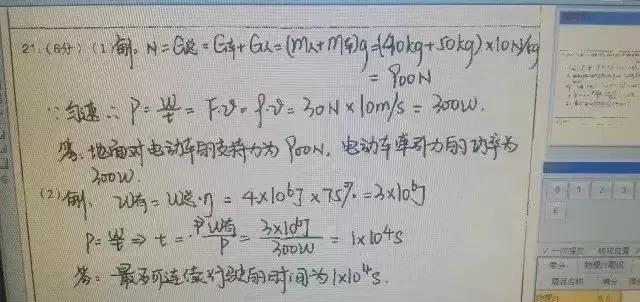 21.(6分)(1)解. N=G总=G车+G人=(m人+m车)g=(40kg+50kg)×10N/kg
=900N
∵匀速∴P=W/t=F·v=f·v=30N×10m/s=300W.
答:地面对电动车的支持力为900N,电动车牵引力的功率为
300W.
(2)解. W有=W总·η=4×10⁶J×75%=3×10⁶J
P=W/t⇒t=W有/P=3×10⁶J/300W=1×10⁴s
答:最多可连续行驶的时间为1×10⁴s.
0 1 2 3
6
一次提交